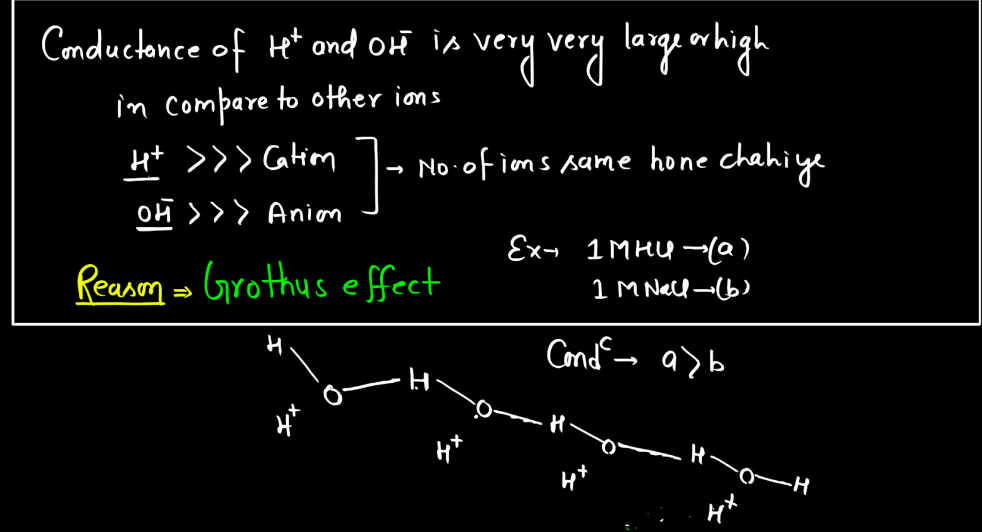 Conductance of H⁺ and OH⁻ is very very large or high
in compare to other ions
H⁺ >>> Cation
→ No. of ions same hone chahiye
OH⁻ >>> Anion
Ex→ 1 M HCl →(a)
1 M NaCl →(b)
Reason ⇒ Grothus effect
Condᶜ → a>b
H
O H O H O H O H
H⁺ H⁺ H⁺ H⁺